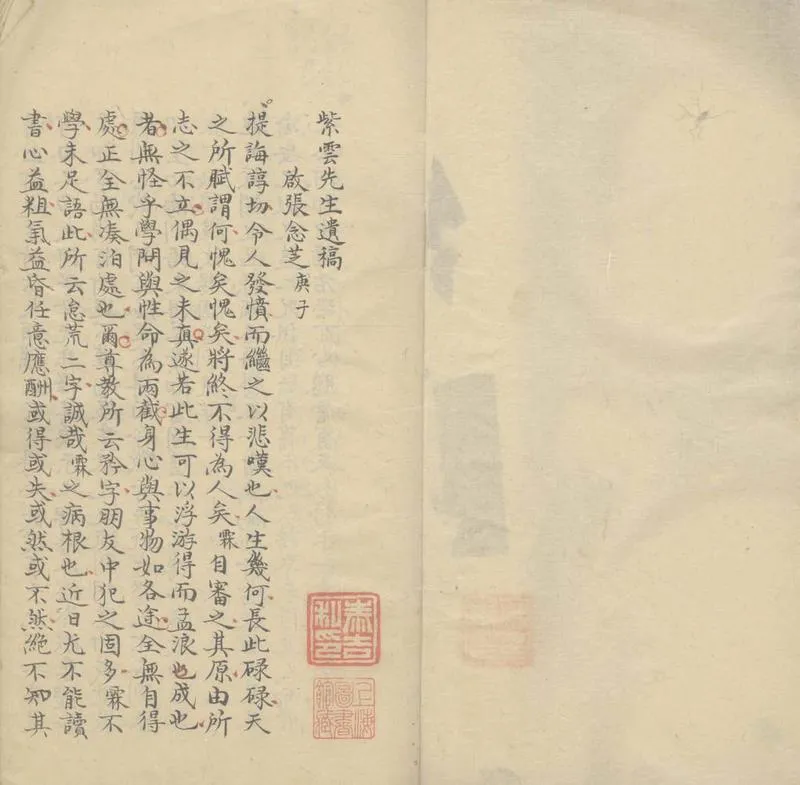 紫雲先生遺稿
啟張念芝庚子
提誨諄切令人發憤而繼之以悲嘆也人生幾何長此碌碌天
之所賦謂何愧矣愧矣將終不得為人矣霖自審之其原由所
志之不立偶見之未真遂若此生可以浮游得而孟浪也成也
者無怪乎學問與性命為兩截身心與事物如各途全無自得
處正全無湊泊處也爾尊教所云矜字朋友中犯之固多霖不
學未足語此所云怠荒二字誠哉霖之病根也近日尤不能讀
書心益粗氣益昏任意應酬或得或失或然或不然絕不知其
上海圖書館藏